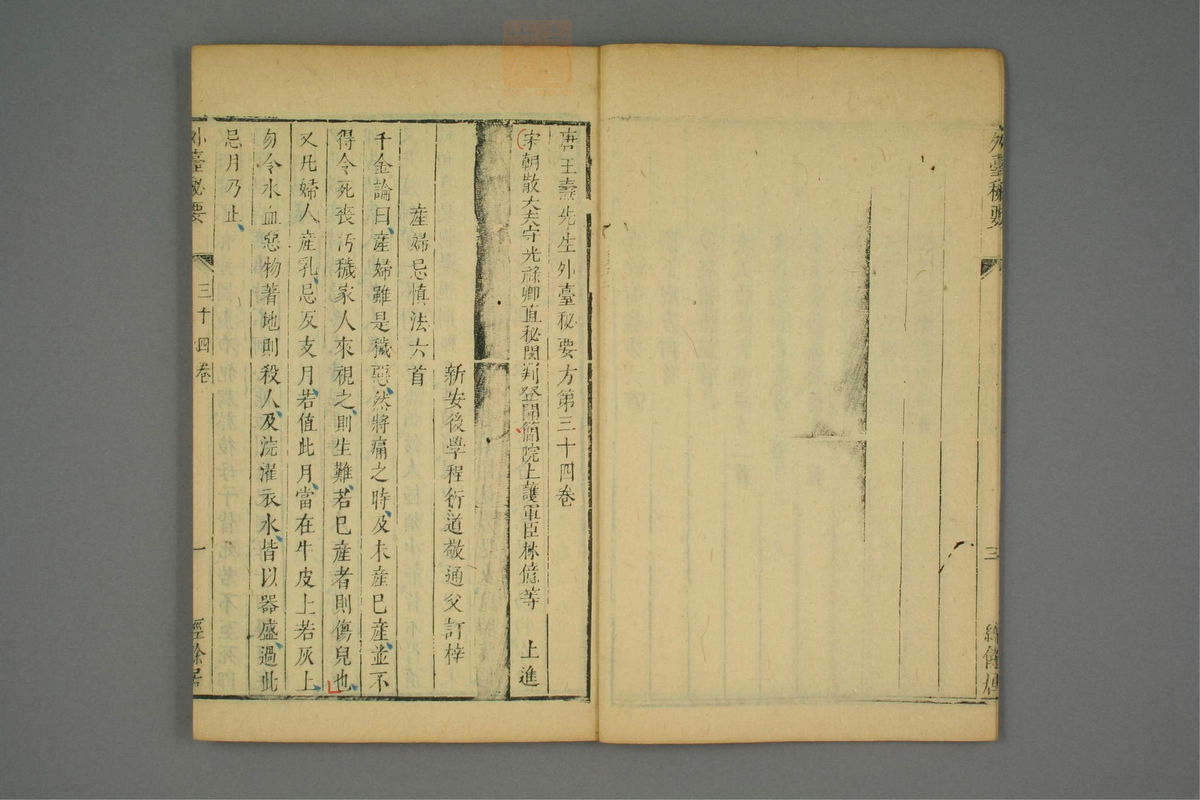 外臺秘要
三
經餘居
唐王燾先生外臺秘要方第三十四卷
宋朝散大夫守光祿卿直秘閣判登聞簡院上護軍臣林億等 上進
新安後學程衍道敬通父訂梓
產婦忌慎法六首
千金論曰產婦雖是穢惡然將痛之時及未產已產並不
得令死喪汚穢家人來視之則生難若已產者則傷兒也
又凡婦人產乳忌反支月若值此月當在牛皮上若灰上
勿令水血惡物著地則殺人及浣濯衣水皆以器盛過此
忌月乃止
外臺秘要
三十四卷
一
經餘居